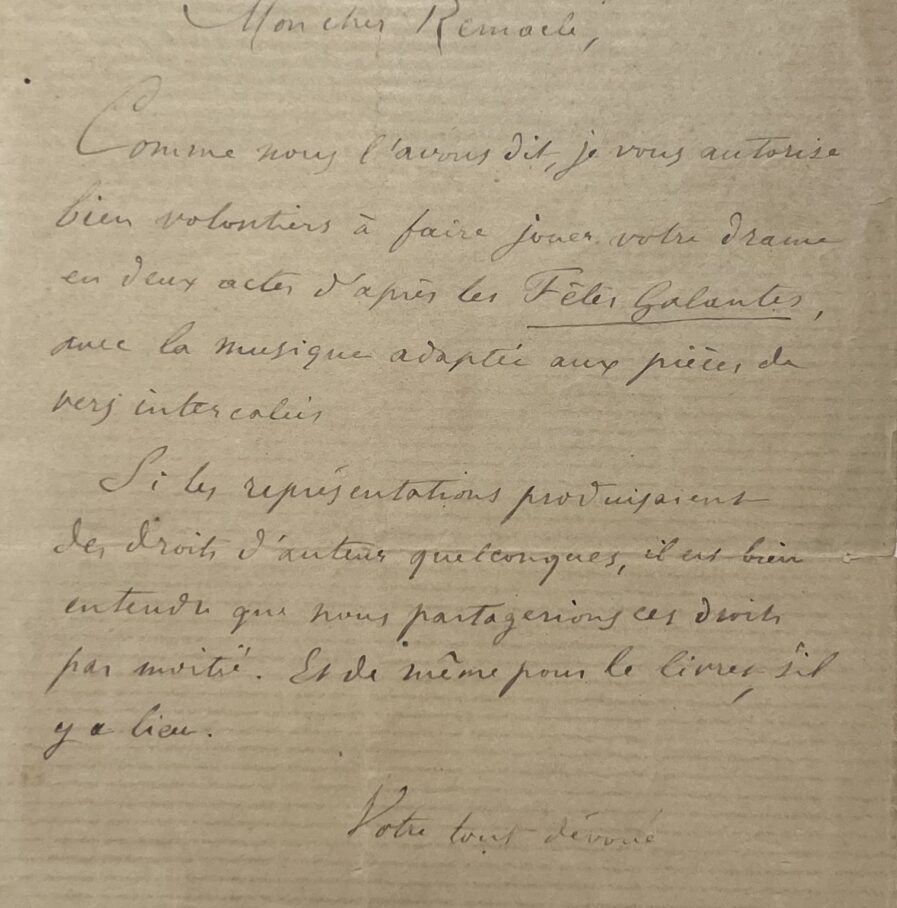 Mon cher Remacle,
Comme nous l'avons dit, je vous autorise
bien volontiers à faire jouer votre drame
en deux actes d'après les Fêtes Galantes,
avec la musique adaptée aux pièces de
vers intercalées
Si les représentations produisaient
des droits d'auteur quelconques, il est bien
entendu que nous partagerions ces droits
par moitié. Et de même pour le livret, s'il
y a lieu.
Votre tout dévoué